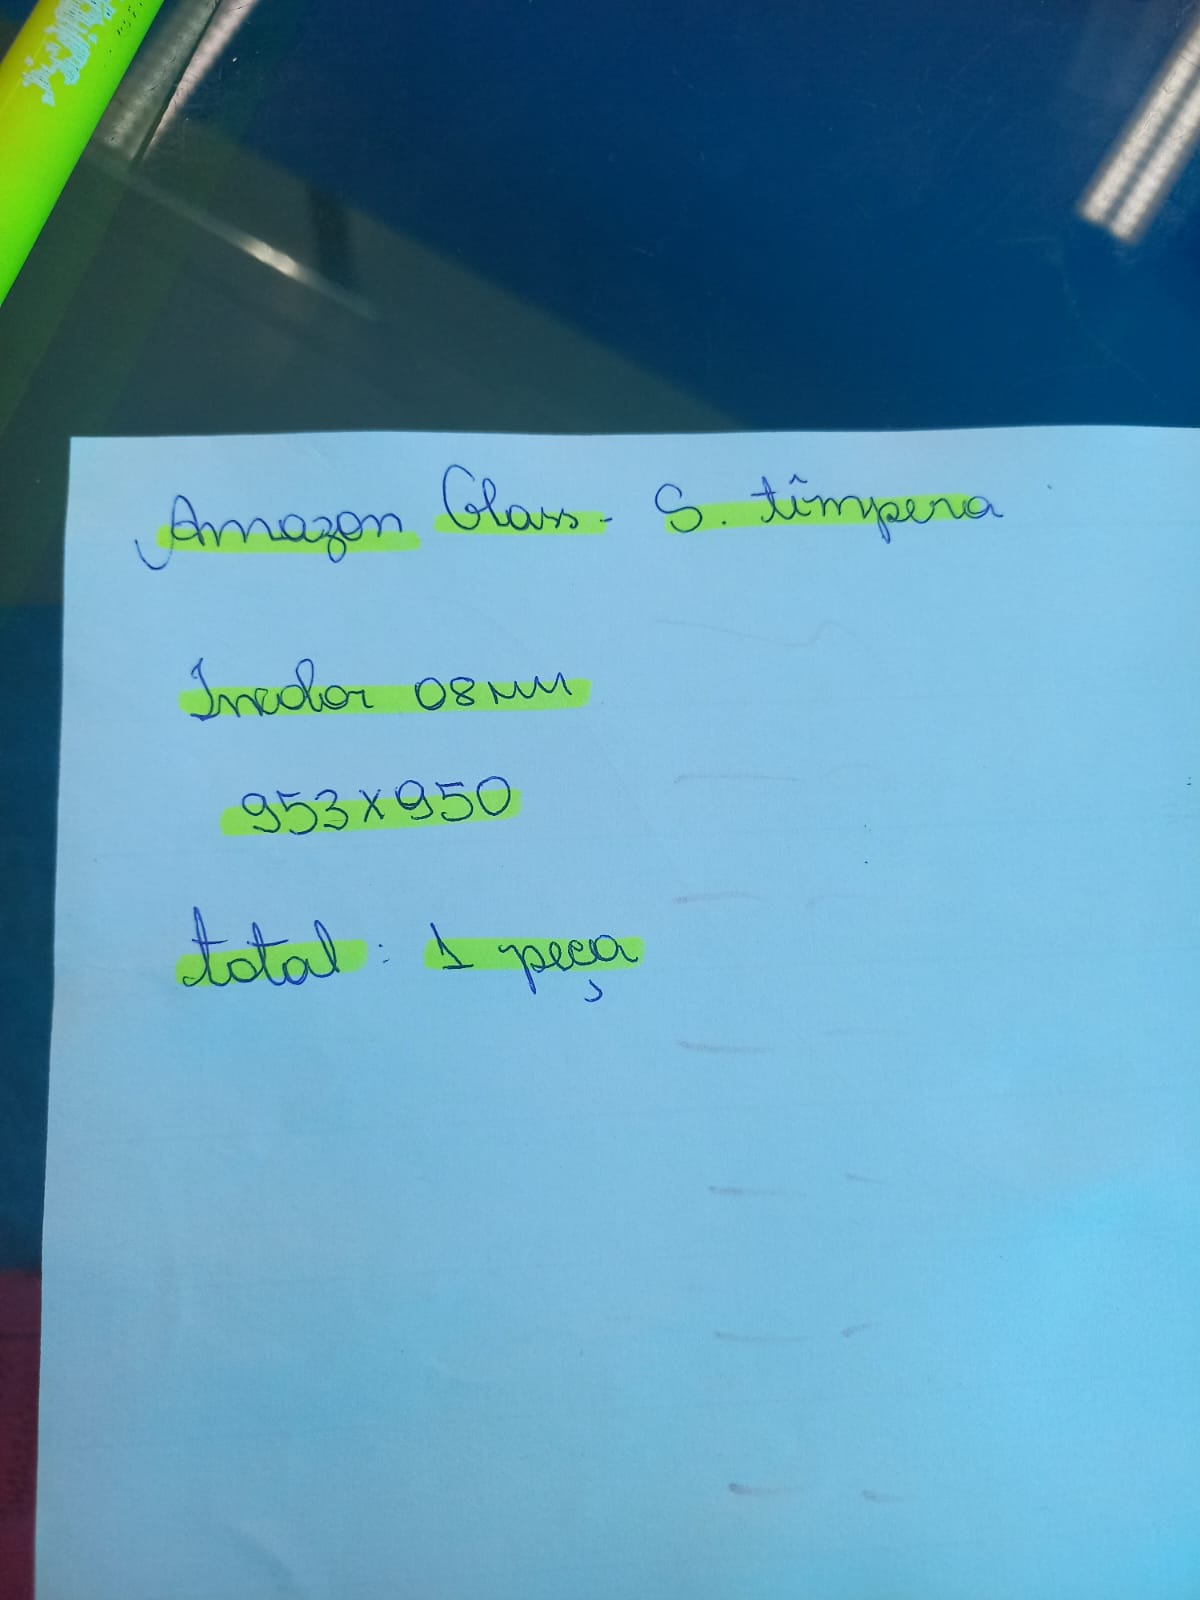 Amazon Glass - S. têmpera
Incolor 08mm
953x950
total: 1 peça